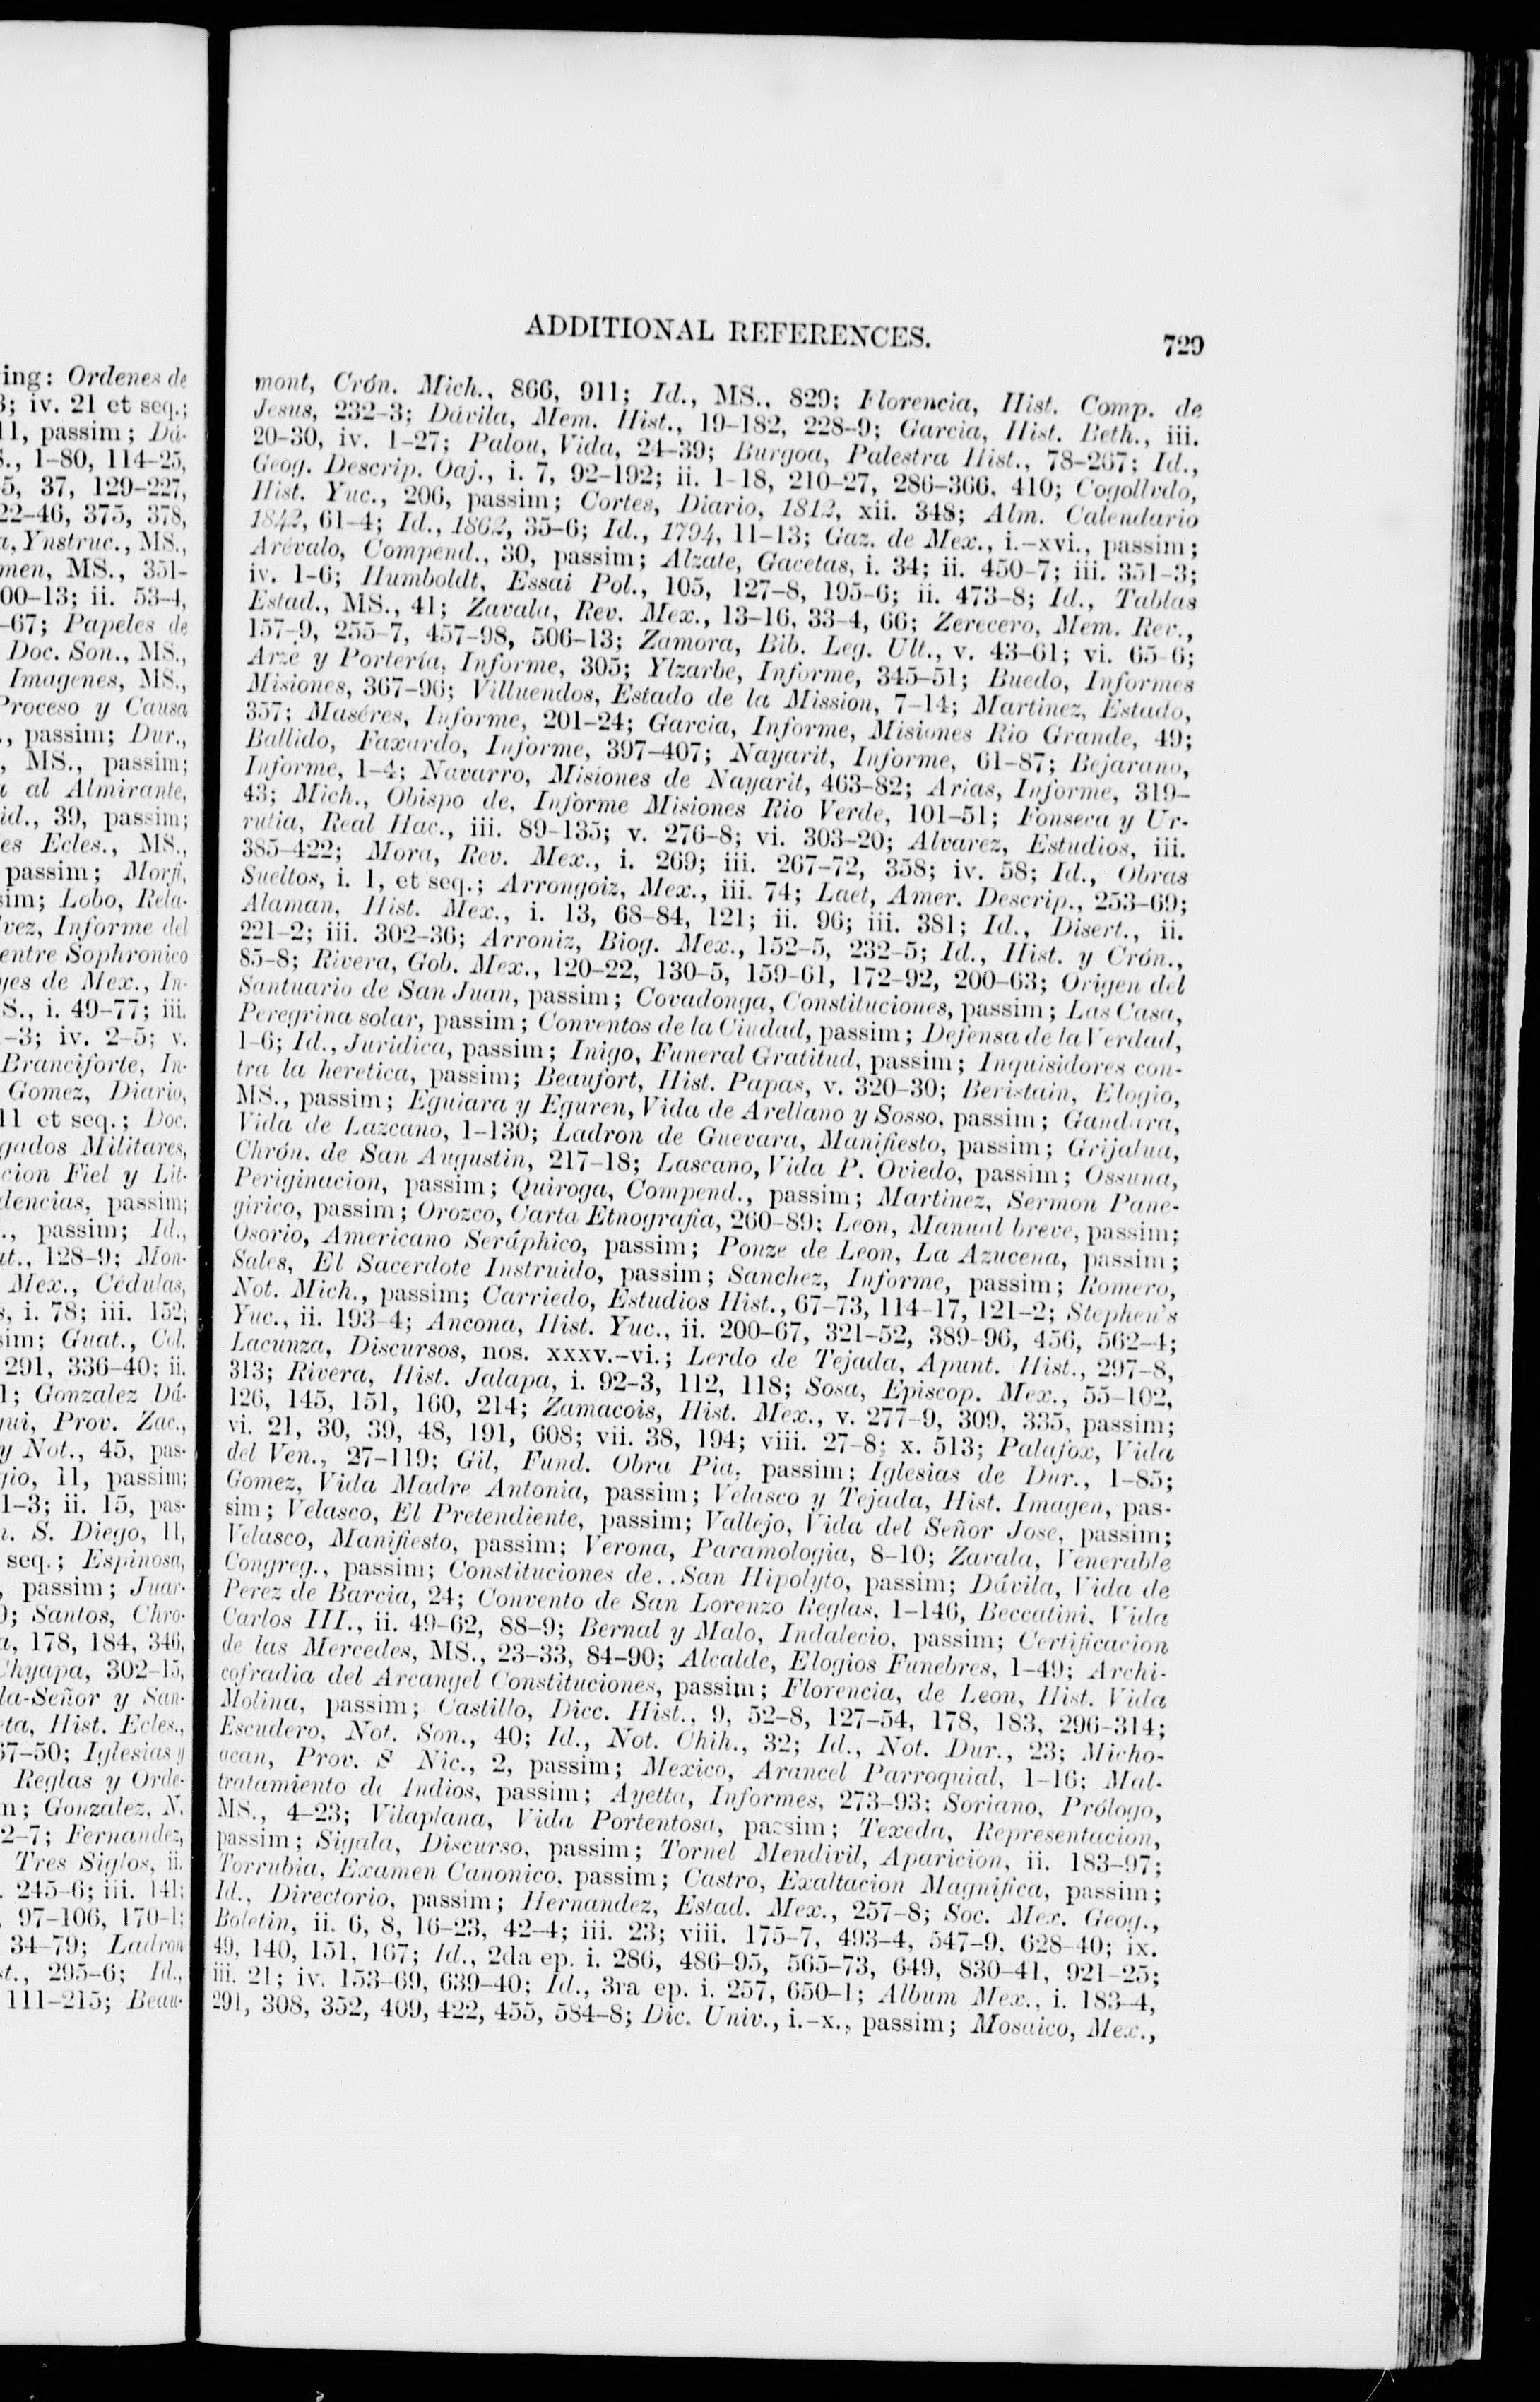 ing: Ordenes de
3; iv. 21 et seq.;
11, passim; Dá-
S., 1-80, 114-25,
5, 37, 129-227,
22-46, 375, 378,
a, Ynstruc., MS.,
men, MS., 351-
00-13; ii. 53-4,
-67; Papeles de
Doc. Son., MS.,
Imagenes, MS.,
Proceso y Causa
., passim; Dur.,
, MS., passim;
a al Almirante,
id., 39, passim;
es Ecles., MS.,
passim; Morfi,
sim; Lobo, Rela-
lvez, Informe del
entre Sophronico
yes de Mex., In-
S., i. 49-77; iii.
-3; iv. 2-5; v.
Branciforte, In-
Gomez, Diario,
11 et seq.; Doc.
gados Militares,
cion Fiel y Lit-
dencias, passim;
., passim; Id.,
at., 128-9; Mon-
Mex., Cédulas,
s, i. 78; iii. 152;
sim; Guat., Col.
291, 336-40; ii.
1; Gonzalez Dá-
qui, Prov. Zac.,
y Not., 45, pas-
gio, 11, passim;
1-3; ii. 15, pas-
n. S. Diego, 11,
seq.; Espinosa,
, passim; Juar-
9; Santos, Chro-
a, 178, 184, 346,
Chyapa, 302-15,
la-Señor y San-
eta, Hist. Ecles.,
37-50; Iglesias y
Reglas y Orde-
m; Gonzalez, N.
2-7; Fernandez,
Tres Siglos, ii.
. 245-6; iii. 141;
, 97-106, 170-1;
34-79; Ladron
st., 295-6; Id.,
111-215; Beau-
ADDITIONAL REFERENCES. 729
mont, Crón. Mich., 866, 911; Id., MS., 829; Florencia, Hist. Comp. de
Jesus, 232-3; Dávila, Mem. Hist., 19-182, 228-9; Garcia, Hist. Beth., iii.
20-30, iv. 1-27; Palou, Vida, 24-39; Burgoa, Palestra Hist., 78-267; Id.,
Geog. Descrip. Oaj., i. 7, 92-192; ii. 1-18, 210-27, 286-366, 410; Cogollvdo,
Hist. Yuc., 206, passim; Cortes, Diario, 1812, xii. 348; Alm. Calendario
1842, 61-4; Id., 1862, 35-6; Id., 1794, 11-13; Gaz. de Mex., i.-xvi., passim;
Arévalo, Compend., 30, passim; Alzate, Gacetas, i. 34; ii. 450-7; iii. 351-3;
iv. 1-6; Humboldt, Essai Pol., 105, 127-8, 195-6; ii. 473-8; Id., Tablas
Estad., MS., 41; Zavala, Rev. Mex., 13-16, 33-4, 66; Zerecero, Mem. Rev.,
157-9, 255-7, 457-98, 506-13; Zamora, Bib. Leg. Ult., v. 43-61; vi. 65-6;
Arze y Portería, Informe, 305; Ylzarbe, Informe, 345-51; Buedo, Informes
Misiones, 367-96; Villuendos, Estado de la Mission, 7-14; Martinez, Estado,
357; Maséres, Informe, 201-24; Garcia, Informe, Misiones Rio Grande, 49;
Ballido, Faxardo, Informe, 397-407; Nayarit, Informe, 61-87; Bejarano,
Informe, 1-4; Navarro, Misiones de Nayarit, 463-82; Arias, Informe, 319-
43; Mich., Obispo de, Informe Misiones Rio Verde, 101-51; Fonseca y Ur-
rutia, Real Hac., iii. 89-135; v. 276-8; vi. 303-20; Alvarez, Estudios, iii.
385-422; Mora, Rev. Mex., i. 269; iii. 267-72, 358; iv. 58; Id., Obras
Sueltos, i. 1, et seq.; Arrongoiz, Mex., iii. 74; Laet, Amer. Descrip., 253-69;
Alaman, Hist. Mex., i. 13, 68-84, 121; ii. 96; iii. 381; Id., Disert., ii.
221-2; iii. 302-36; Arroniz, Biog. Mex., 152-5, 232-5; Id., Hist. y Crón.,
85-8; Rivera, Gob. Mex., 120-22, 130-5, 159-61, 172-92, 200-63; Origen del
Santuario de San Juan, passim; Covadonga, Constituciones, passim; Las Casa,
Peregrina solar, passim; Conventos de la Ciudad, passim; Defensa de la Verdad,
1-6; Id., Juridica, passim; Inigo, Funeral Gratitud, passim; Inquisidores con-
tra la heretica, passim; Beaufort, Hist. Papas, v. 320-30; Beristain, Elogio,
MS., passim; Eguiara y Eguren, Vida de Arellano y Sosso, passim; Gandara,
Vida de Lazcano, 1-130; Ladron de Guevara, Manifiesto, passim; Grijalua,
Chrón. de San Augustin, 217-18; Lascano, Vida P. Oviedo, passim; Ossuna,
Periginacion, passim; Quiroga, Compend., passim; Martinez, Sermon Pane-
girico, passim; Orozco, Carta Etnografia, 260-89; Leon, Manual breve, passim;
Osorio, Americano Seráphico, passim; Ponze de Leon, La Azucena, passim;
Sales, El Sacerdote Instruido, passim; Sanchez, Informe, passim; Romero,
Not. Mich., passim; Carriedo, Estudios Hist., 67-73, 114-17, 121-2; Stephen's
Yuc., ii. 193-4; Ancona, Hist. Yuc., ii. 200-67, 321-52, 389-96, 456, 562-4;
Lacunza, Discursos, nos. xxxv.-vi.; Lerdo de Tejada, Apunt. Hist., 297-8,
313; Rivera, Hist. Jalapa, i. 92-3, 112, 118; Sosa, Episcop. Mex., 55-102,
126, 145, 151, 160, 214; Zamacois, Hist. Mex., v. 277-9, 309, 335, passim;
vi. 21, 30, 39, 48, 191, 608; vii. 38, 194; viii. 27-8; x. 513; Palafox, Vida
del Ven., 27-119; Gil, Fund. Obra Pia, passim; Iglesias de Dur., 1-85;
Gomez, Vida Madre Antonia, passim; Velasco y Tejada, Hist. Imagen, pas-
sim; Velasco, El Pretendiente, passim; Vallejo, Vida del Señor Jose, passim;
Velasco, Manifiesto, passim; Verona, Paramologia, 8-10; Zavala, Venerable
Congreg., passim; Constituciones de..San Hipolyto, passim; Dávila, Vida de
Perez de Barcia, 24; Convento de San Lorenzo Reglas, 1-146, Beccatini, Vida
Carlos III., ii. 49-62, 88-9; Bernal y Malo, Indalecio, passim; Certificacion
de las Mercedes, MS., 23-33, 84-90; Alcalde, Elogios Funebres, 1-49; Archi-
cofradia del Arcangel Constituciones, passim; Florencia, de Leon, Hist. Vida
Molina, passim; Castillo, Dicc. Hist., 9, 52-8, 127-54, 178, 183, 296-314;
Escudero, Not. Son., 40; Id., Not. Chih., 32; Id., Not. Dur., 23; Micho-
acan, Prov. S Nic., 2, passim; Mexico, Arancel Parroquial, 1-16; Mal-
tratamiento de Indios, passim; Ayetta, Informes, 273-93; Soriano, Prólogo,
MS., 4-23; Vilaplana, Vida Portentosa, passim; Texeda, Representacion,
passim; Sigala, Discurso, passim; Tornel Mendivil, Aparicion, ii. 183-97;
Torrubia, Examen Canonico, passim; Castro, Exaltacion Magnifica, passim;
Id., Directorio, passim; Hernandez, Estad. Mex., 257-8; Soc. Mex. Geog.,
Boletin, ii. 6, 8, 16-23, 42-4; iii. 23; viii. 175-7, 493-4, 547-9, 628-40; ix.
49, 140, 151, 167; Id., 2da ep. i. 286, 486-95, 565-73, 649, 830-41, 921-25;
iii. 21; iv. 153-69, 639-40; Id., 3ra ep. i. 257, 650-1; Album Mex., i. 183-4,
291, 308, 352, 409, 422, 455, 584-8; Dic. Univ., i.-x., passim; Mosaico, Mex.,